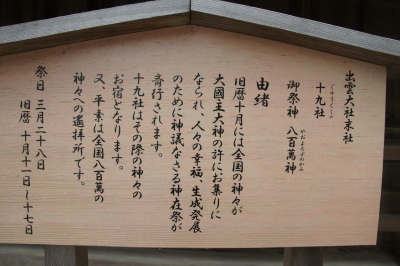 出雲大社末社
じゅうくしゃ
十九社
やおよろずのかみ
御祭神 八百萬神
由緒
旧暦十月には全国の神々が
大國主大神の許にお集りに
なられ、人々の幸福、生成発展
のために神議なさる神在祭が
斎行されます。
十九社はその際の神々の
お宿となります。
又、平素は全国八百萬の
神々への遙拝所です。
祭日 三月二十八日
旧暦 十月十一日~十七日